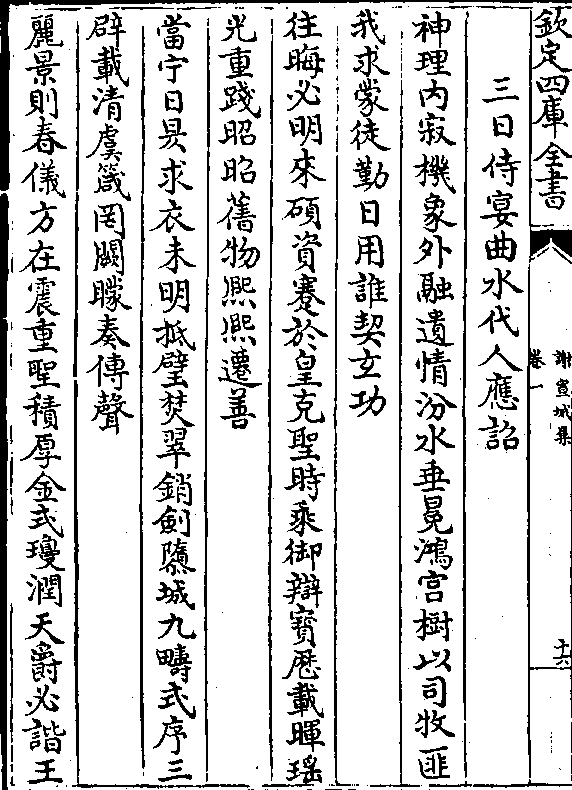 欽定四庫全書
謝宣城集
卷一
十六
三日侍宴曲水代人應詔
神理内寂機象外融遺情汾水垂冕鴻宫樹以司牧匪
我求蒙徒勤日用誰契玄功
往晦必明來碩資蹇於皇克聖時乘御辯寳厯載暉瑤
光重踐昭昭舊物熙熙遷善
當宁日昃求衣未明抵璧焚翠銷劍隳城九疇式序三
辟載清虞箴罔闕矇奏傳聲
麗景則春儀方在震重聖積厚金式瓊潤天爵必諧王